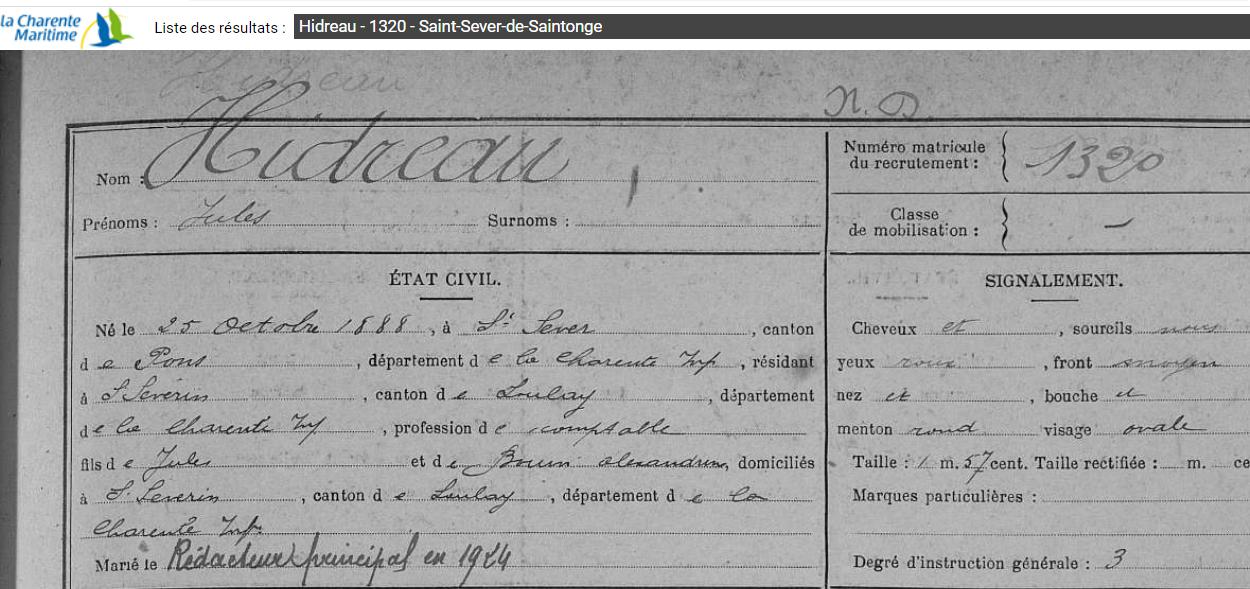 la Charente
Maritime
Liste des résultats : Hidreau - 1320 - Saint-Sever-de-Saintonge
N. D
Nom : Hidreau
Prénoms : Jules Surnoms :
Numéro matricule
du recrutement : 1320
Classe
de mobilisation : —
ÉTAT CIVIL.
Né le 25 Octobre 1888, à St Sever, canton
de Pons, département de la Charente Inf, résidant
à St Séverin, canton de Loulay, département
de la Charente Inf, profession de comptable
fils de Jules et de Bouin alexandrine, domiciliés
à St Severin, canton de Loulay, département de la
Charente Inf.
Marié le Rédacteur principal en 1924
SIGNALEMENT.
Cheveux et, sourcils noirs
yeux roux, front moyen
nez et, bouche et
menton rond visage ovale
Taille : 1 m. 57 cent. Taille rectifiée : m. ce
Marques particulières :
Degré d'instruction générale : 3